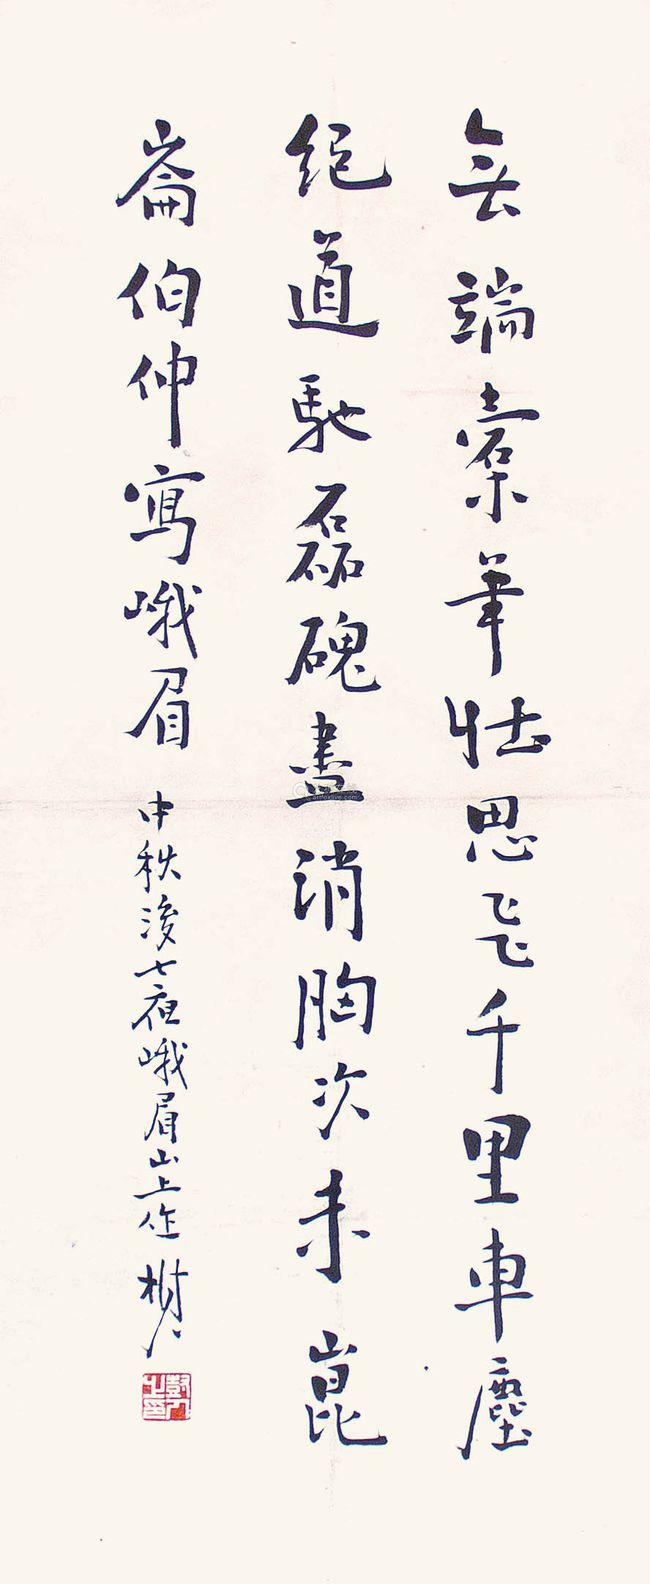 無端橐筆壯思飛千里車塵
絕道馳磊磈盡消胸次未崑
崙伯仲寫峨眉 中秋後七夜峨眉山上作 樹人